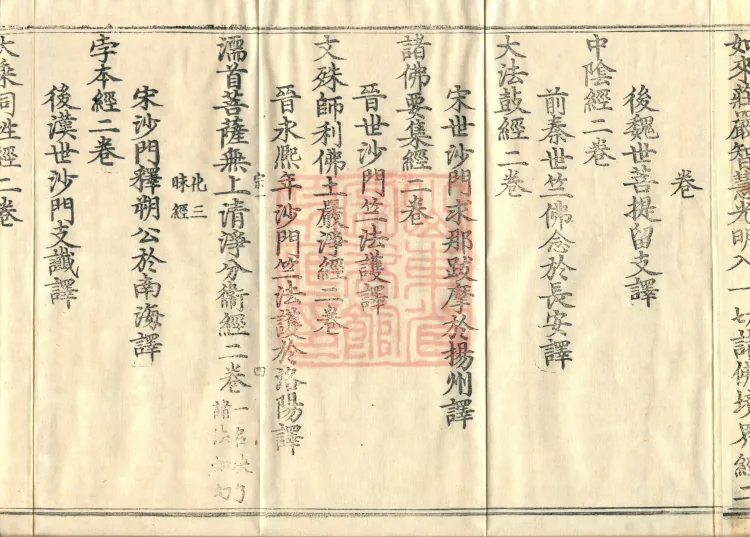 如來莊嚴智慧光明入一切諸佛境界經二
卷
後魏世菩提留支譯
中陰經二卷
前秦世竺佛念於長安譯
大法鼓經二卷
宋世沙門求那跋摩於揚州譯
諸佛要集經二卷
晉世沙門竺法護譯
文殊師利佛土嚴淨經二卷
晉永熙年沙門竺法護於洛陽譯
宗一 四
濡首菩薩無上清淨分衛經二卷一名决了諸法如幻
化三昧經
宋沙門釋朔公於南海譯
孛本經二卷
後漢世沙門支讖譯
大乘同性經二卷